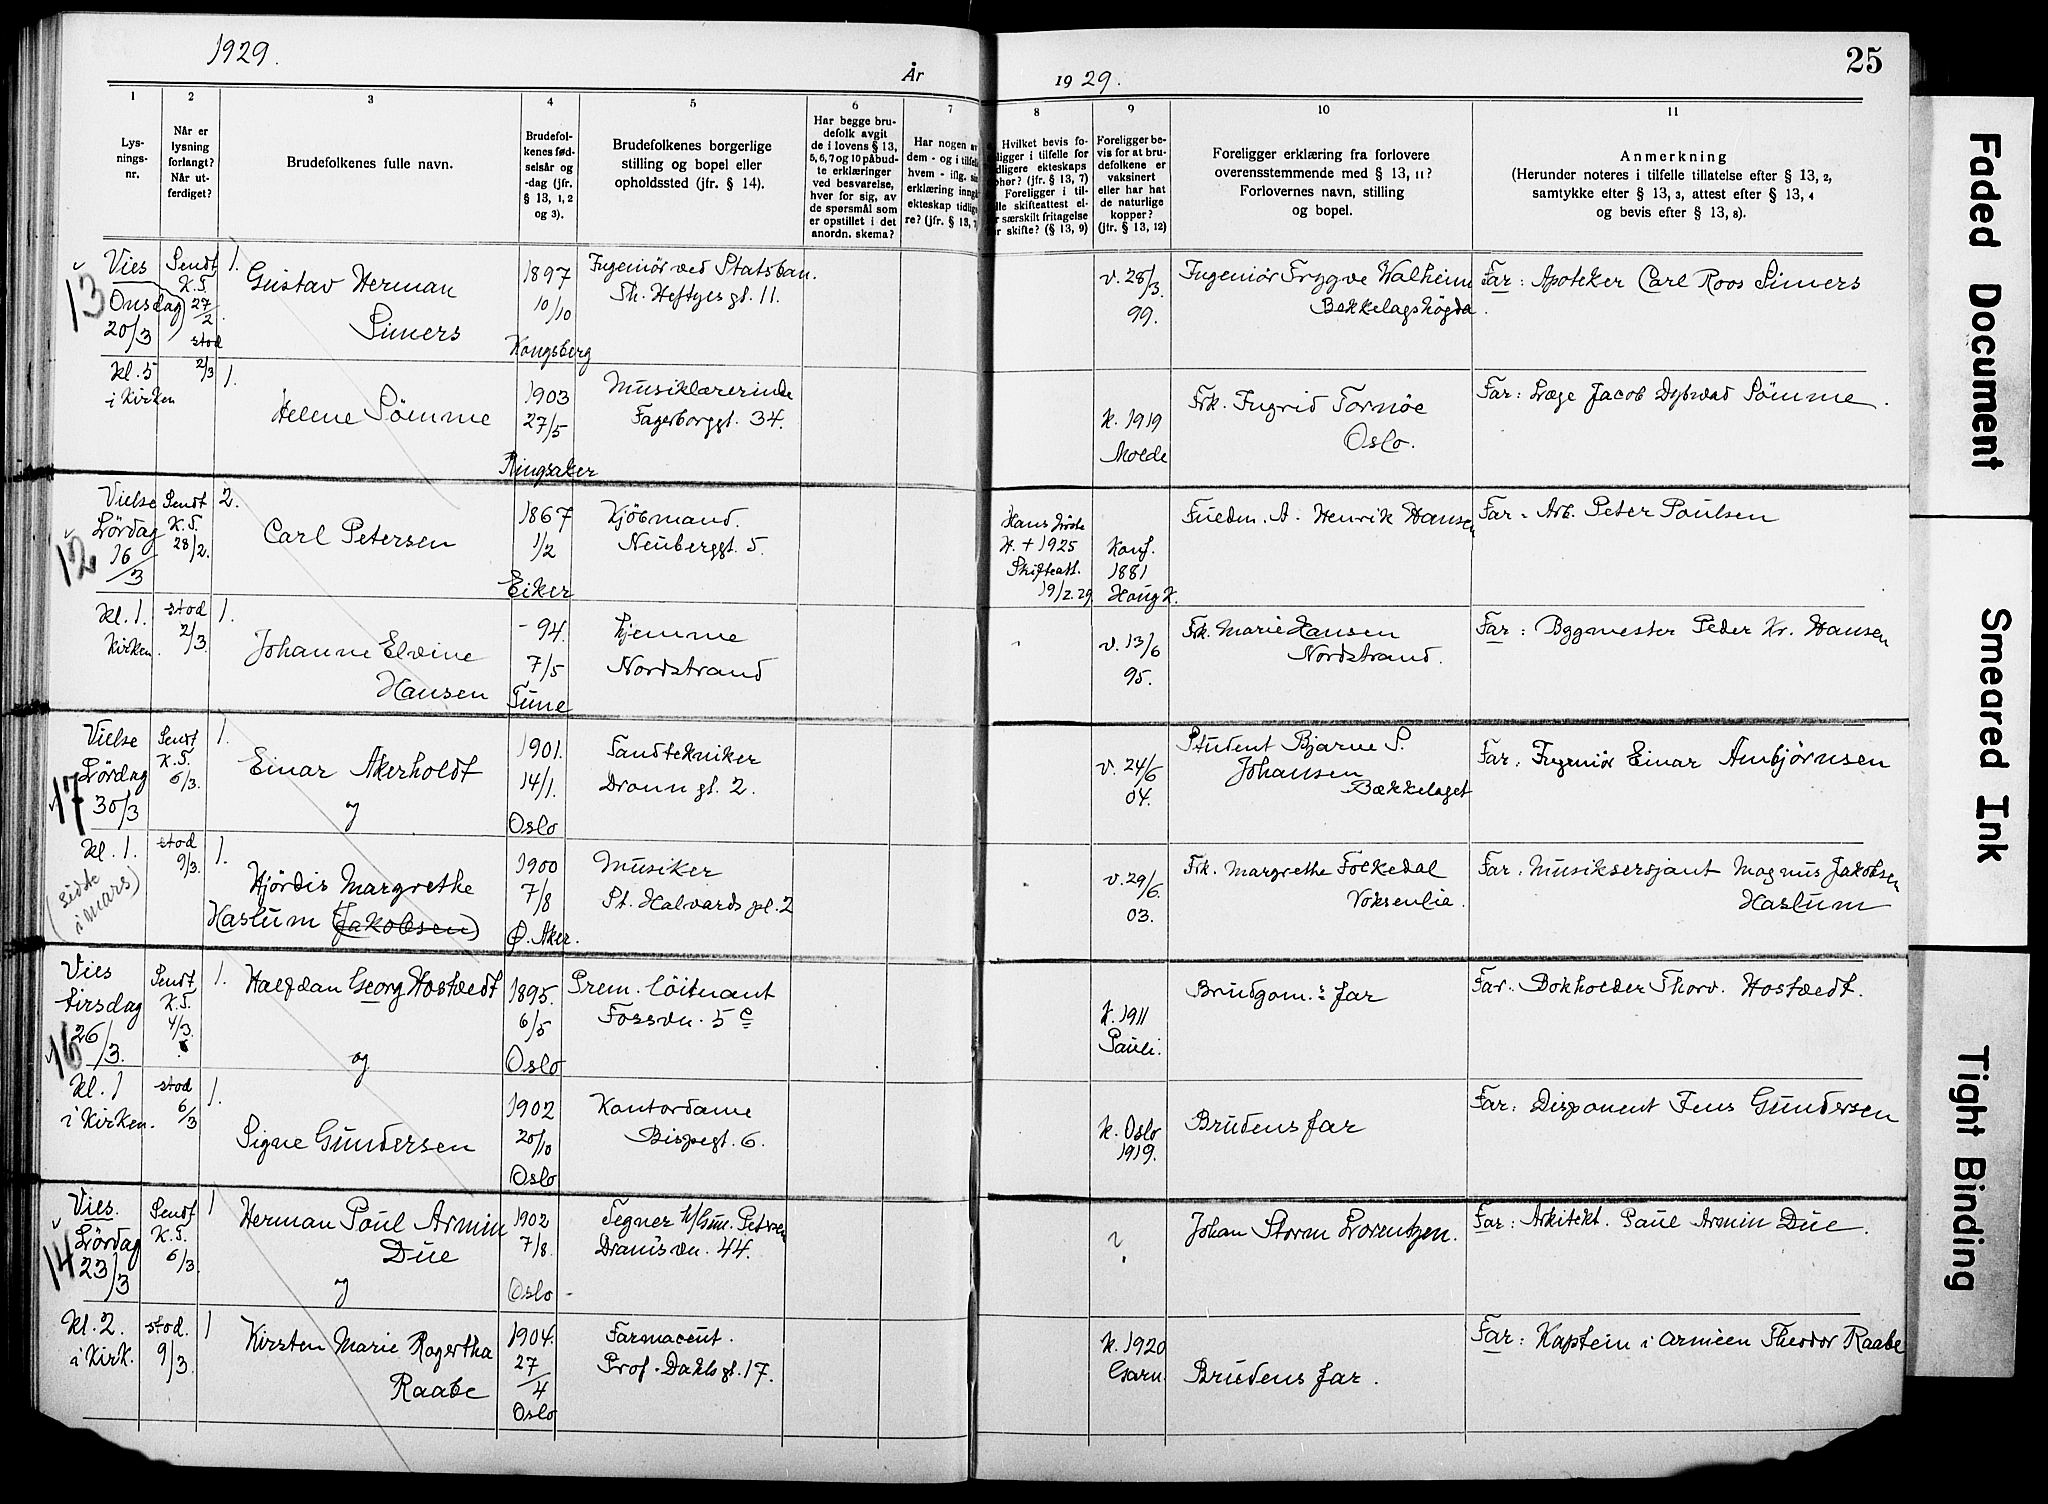 1929.
År
1929.
25
1
2
3
4
5
6
7
8
9
10
11
Lys-
nings-
nr.
Når er
lysning
forlangt?
Når ut-
ferdiget?
Brudefolkenes fulle navn.
Brudefol-
kenes fød-
selsår og
-dag (jfr.
§ 13, 1, 2
og 3).
Brudefolkenes borgerlige
stilling og bopel eller
opholdssted (jfr. § 14).
Har begge bru-
defolk avgit
de i lovens § 13,
5, 6, 7 og 10 påbud-
te erklæringer
ved besvarelse,
hver for sig, av
de spørsmål som
er opstillet i det
anordn. skema?
Har nogen av
dem - og i tilfelle
hvem - iflg. sin
erklæring inngå
ekteskap tidlige
re? (jfr. § 13, 7
Hvilket bevis fo-
ligger i tilfelle for
dligere ekteskaps
phør? (jfr. § 13, 7)
Foreligger i til-
lle skifteattest el-
r særskilt fritagelse
r skifte? (§ 13, 9)
Foreligger be-
vis for at bru-
defolkene er
vaksinert
eller har hat
de naturlige
kopper?
(jfr. § 13, 12)
Foreligger erklæring fra forlovere
overensstemmende med § 13, 11?
Forlovernes navn, stilling
og bopel.
Anmerkning
(Herunder noteres i tilfelle tillatelse efter § 13, 2,
samtykke efter § 13, 3, attest efter § 13, 4
og bevis efter § 13, 8).
13
Vies
Onsdag
20/3
Kl. 5
i Kirken
Sendt
K.T.
27/2.
stod
2/3
1.
Gustav Herman
Simers
1897
10/10
Kongsberg
Ingeniør ved Statsban.
Th. Heftyes gt. 11.
v. 28/3.
99.
Ingeniør Trygve Walheim
Bekkelagshøgda.
Far: Apoteker Carl Roos Simers
1.
Helene Sömme
1903
27/5
Ringsaker
Musiklærerinde
Fagerborggt. 34.
k. 1919
Molde
Frk. Ingrid Tornöe
Oslo.
Far: Læge Jacob Dybwad Sömme.
12
Vielse
Lördag
16/3
Kl. 1.
Kirken.
Sendt
K.T.
28/2.
stod
2/3.
2.
Carl Petersen
1867
1/2
Eiker
Kjöbmand.
Neuberggt. 5.
+ 1925
Skifteatt.
19/2.29
Konf.
1881
Haug K.
A. Henrik Hansen
Far: Arb. Peter Paulsen
1.
Johanne Elvine
Hansen
- 94.
7/5
Tune
Hjemme
Nordstrand
v. 13/6
95.
Frk. Marie Hansen
Nordstrand.
Far: Byggmester Peder Kr. Hansen
17
Vielse
Lördag
30/3
Kl. 1.
(sidste
i mars)
Sendt
K.T.
6/3.
stod
9/3.
1.
Einar Akerholdt
og
1901.
14/1.
Oslo
Tandtekniker
Dronn gt. 2.
v. 24/6
04.
Student Bjarne S.
Johansen
Bækkelaget
Far: Ingeniör Einar Ambjörnsen
1.
Hjördis Margrethe
Haslum (Jakobsen)
1900
7/8
Ø. Aker.
Musiker
St. Halvards pl. 2
v. 29/6.
03.
Frk. Margrethe Folkedal
Voksenlia.
Far. Musiksersjant Magnus Jakobsen
Haslum
16
Vies
tirsdag
26/3.
Kl. 1
i Kirken.
Sendt
K.T.
4/3.
stod
6/3
1.
Halfdan Georg Hostvedt
og
1895.
6/5
Oslo
Prem. löitnant
Fossvn. 5 c
k. 1911
Pauli.
Brudgom.s far
Far: Dokholder Thorv. Hostvedt.
1.
Signe Gundersen
1902
20/10
Oslo
Kontordame
Bispegt. 6.
k. Oslo
1919.
Brudens far
Far: Disponent Jens Gundersen
14
Vies.
Lördag
23/3
Kl. 2.
i Kirk.
Sendt
K.T.
6/3.
stod.
9/3.
1
Herman Poul Armin
Due
og
1902
7/8.
Oslo
Tegner
44.
?
Johan Storm Lorentzen.
Far: Arkitekt. Paul Armin Due.
1
Kirsten Marie Rogertha
Raabe
1904.
27/4
Oslo
Farmaceut.
Prof. Dahls gt. 17.
k. 1920
Garn.
Brudens far.
Far: Kaptein i Armeen Theodor Raabe
Faded Document
Smeared Ink
Tight Binding